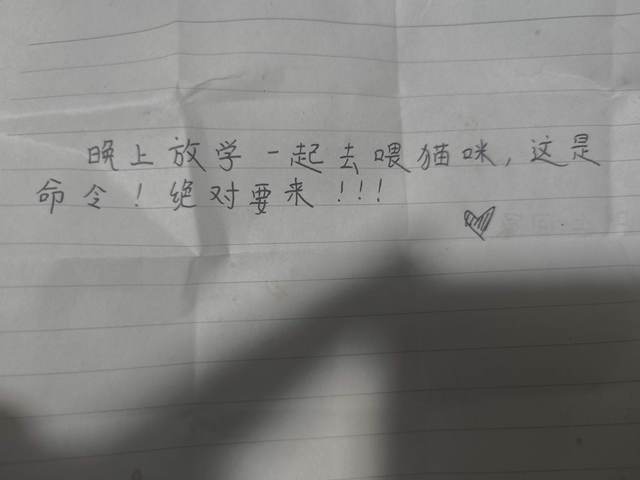 晚上放学一起去喂猫咪，这是
命令！绝对要来！！！